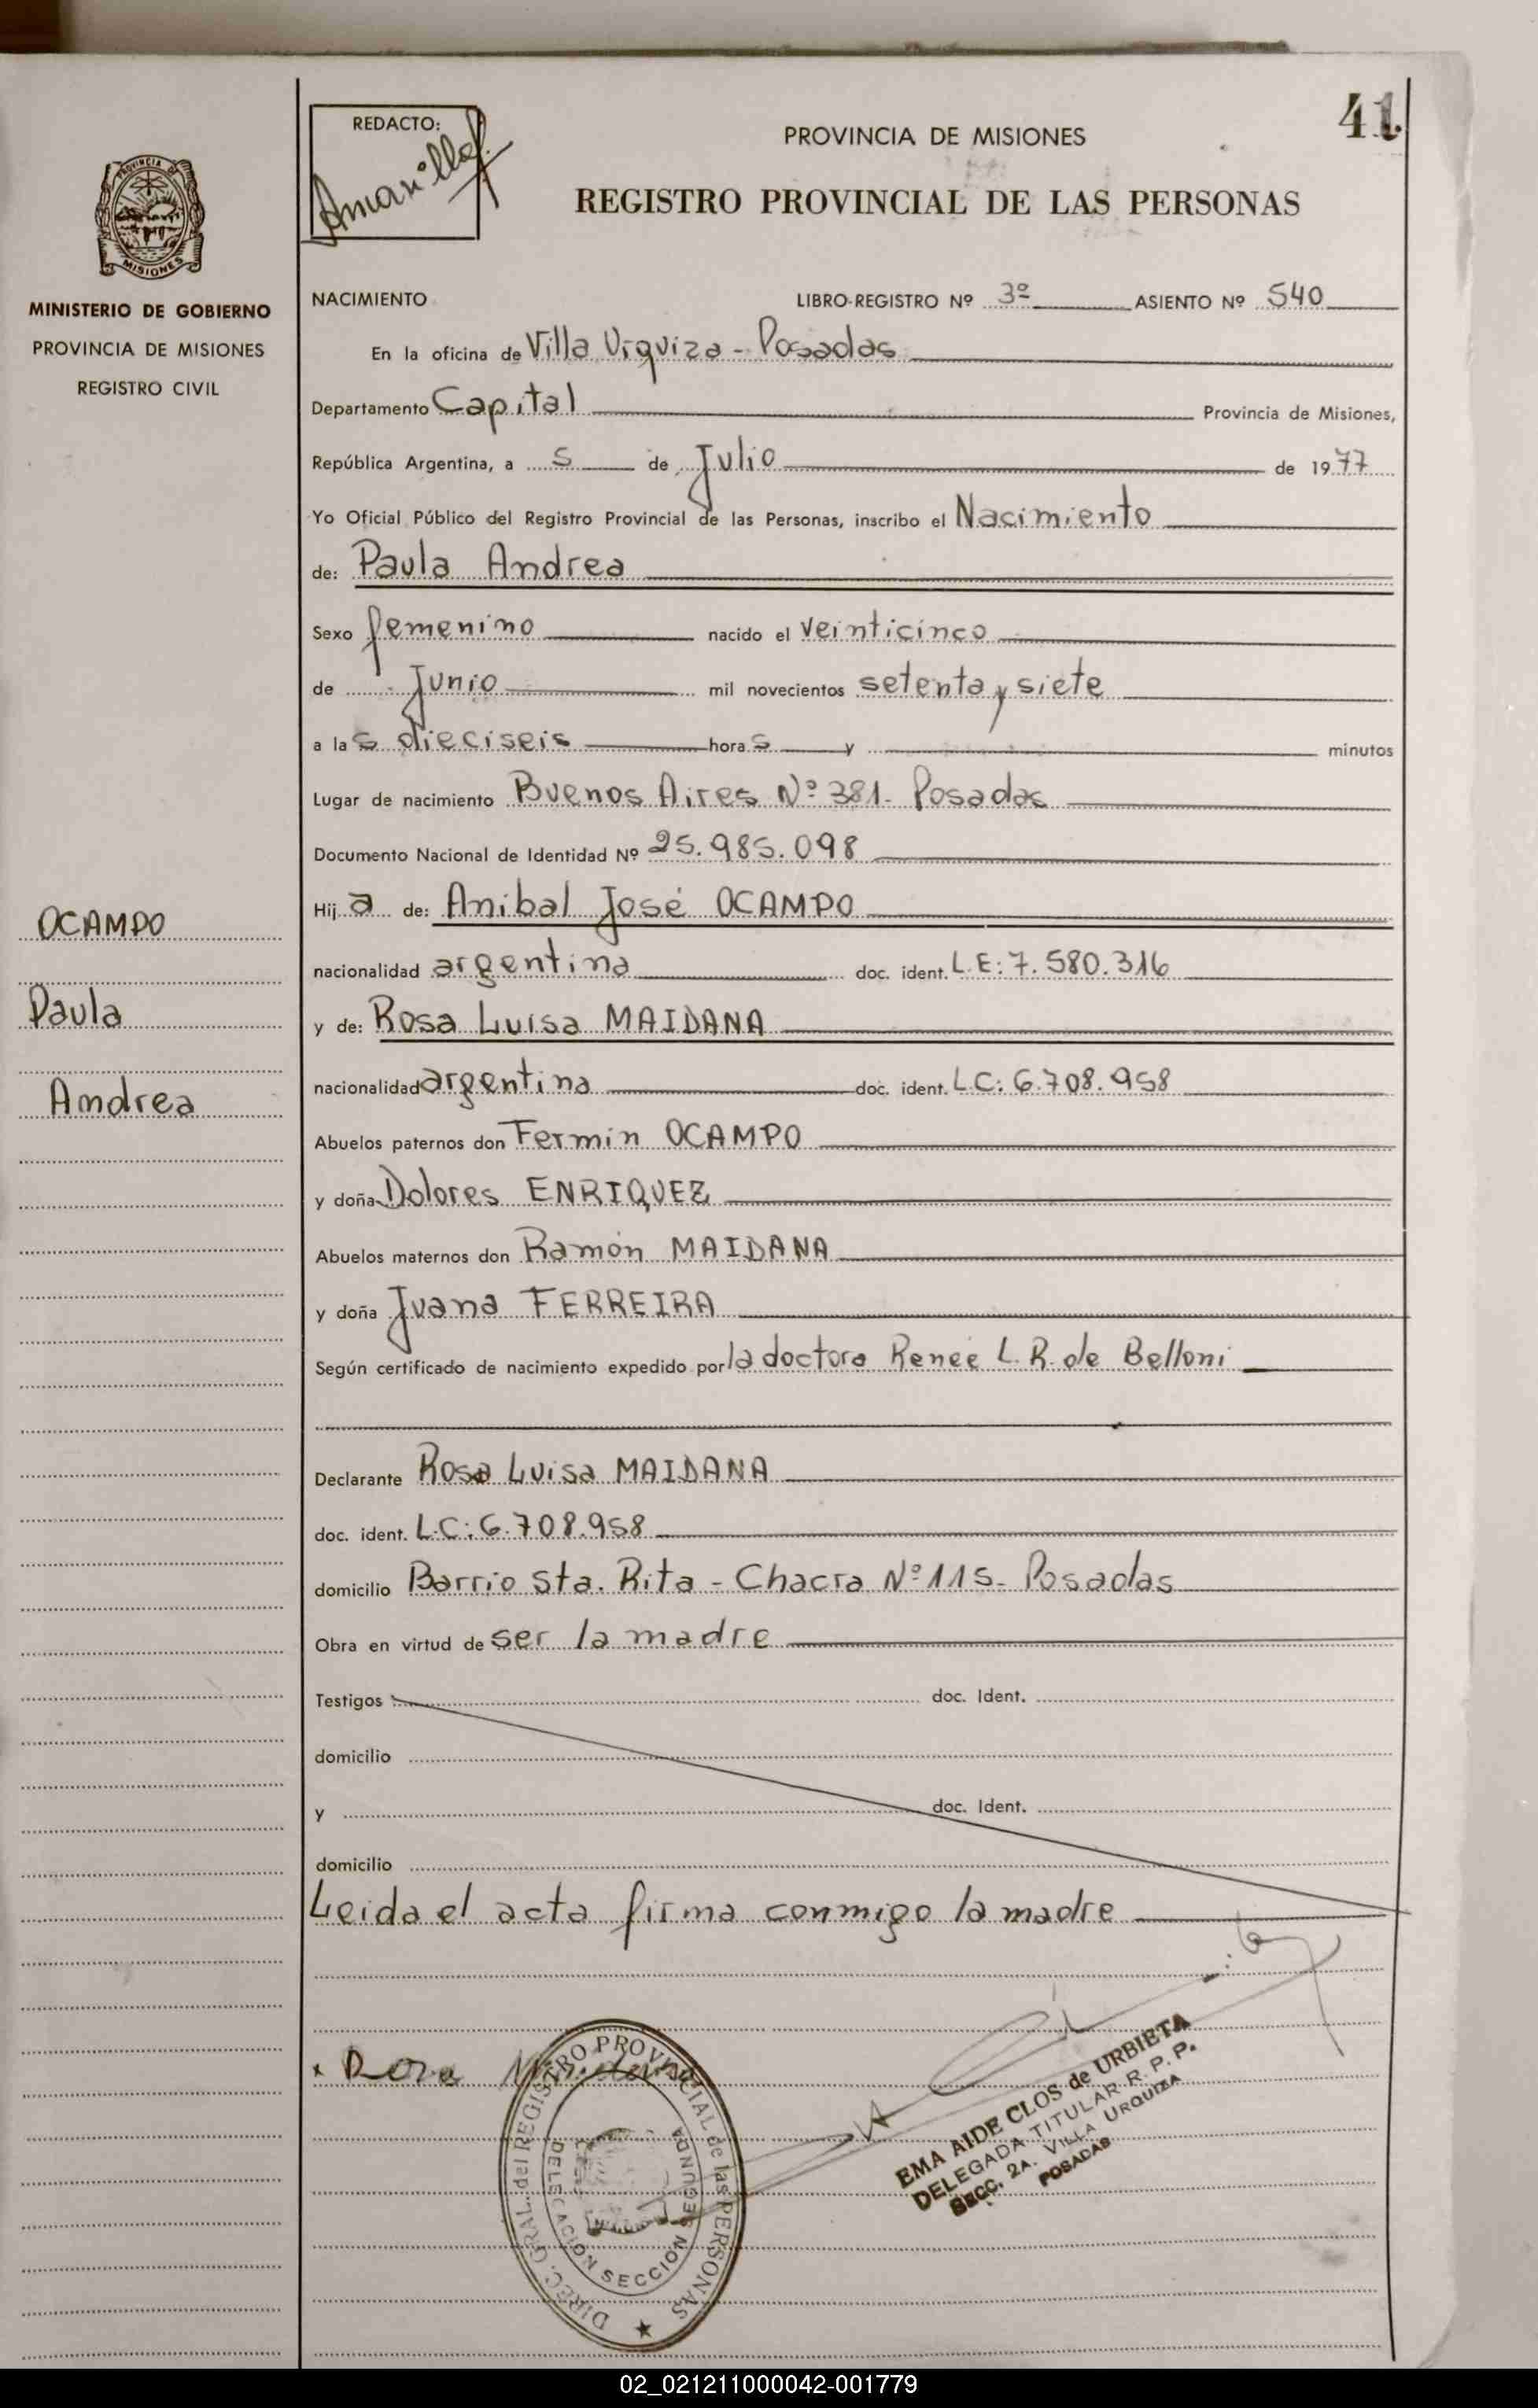 41
REDACTO:
Amarilla
PROVINCIA DE MISIONES
REGISTRO PROVINCIAL DE LAS PERSONAS
PROVINCIA DE
MISIONES
MINISTERIO DE GOBIERNO
PROVINCIA DE MISIONES
REGISTRO CIVIL
NACIMIENTO LIBRO-REGISTRO Nº 3º ASIENTO Nº 540
En la oficina de Villa Urquiza - Posadas
Departamento Capital Provincia de Misiones,
República Argentina, a 5 de Julio de 1977
Yo Oficial Público del Registro Provincial de las Personas, inscribo el Nacimiento
de: Paula Andrea
Sexo femenino nacido el veinticinco
de Junio mil novecientos setenta y siete
a las dieciseis horas y minutos
Lugar de nacimiento Buenos Aires Nº 381- Posadas
Documento Nacional de Identidad Nº 25.985.098
OCAMPO
Paula
Andrea
Hija de: Anibal José OCAMPO
nacionalidad argentina doc. ident. L.E: 7.580.316
y de: Rosa Luisa MAIDANA
nacionalidad argentina doc. ident. L.C: 6.708.958
Abuelos paternos don Fermin OCAMPO
y doña Dolores ENRIQUEZ
Abuelos maternos don Ramón MAIDANA
y doña Juana FERREIRA
Según certificado de nacimiento expedido por la doctora Renée L. R. de Belloni
Declarante Rosa Luisa MAIDANA
doc. ident. L.C: 6.708.958
domicilio Barrio Sta. Rita - Chacra Nº 115- Posadas
Obra en virtud de ser la madre
Testigos doc. Ident.
domicilio
y doc. Ident.
domicilio
Leida el acta firma conmigo la madre
DIREC. GRAL. del REGISTRO PROVINCIAL de las PERSONAS
DELEGACION SECCION SEGUNDA
EMA AIDE CLOS de URBIETA
DELEGADA TITULAR R. P. P.
SECC. 2A. VILLA URQUIZA
POSADAS
02_021211000042-001779